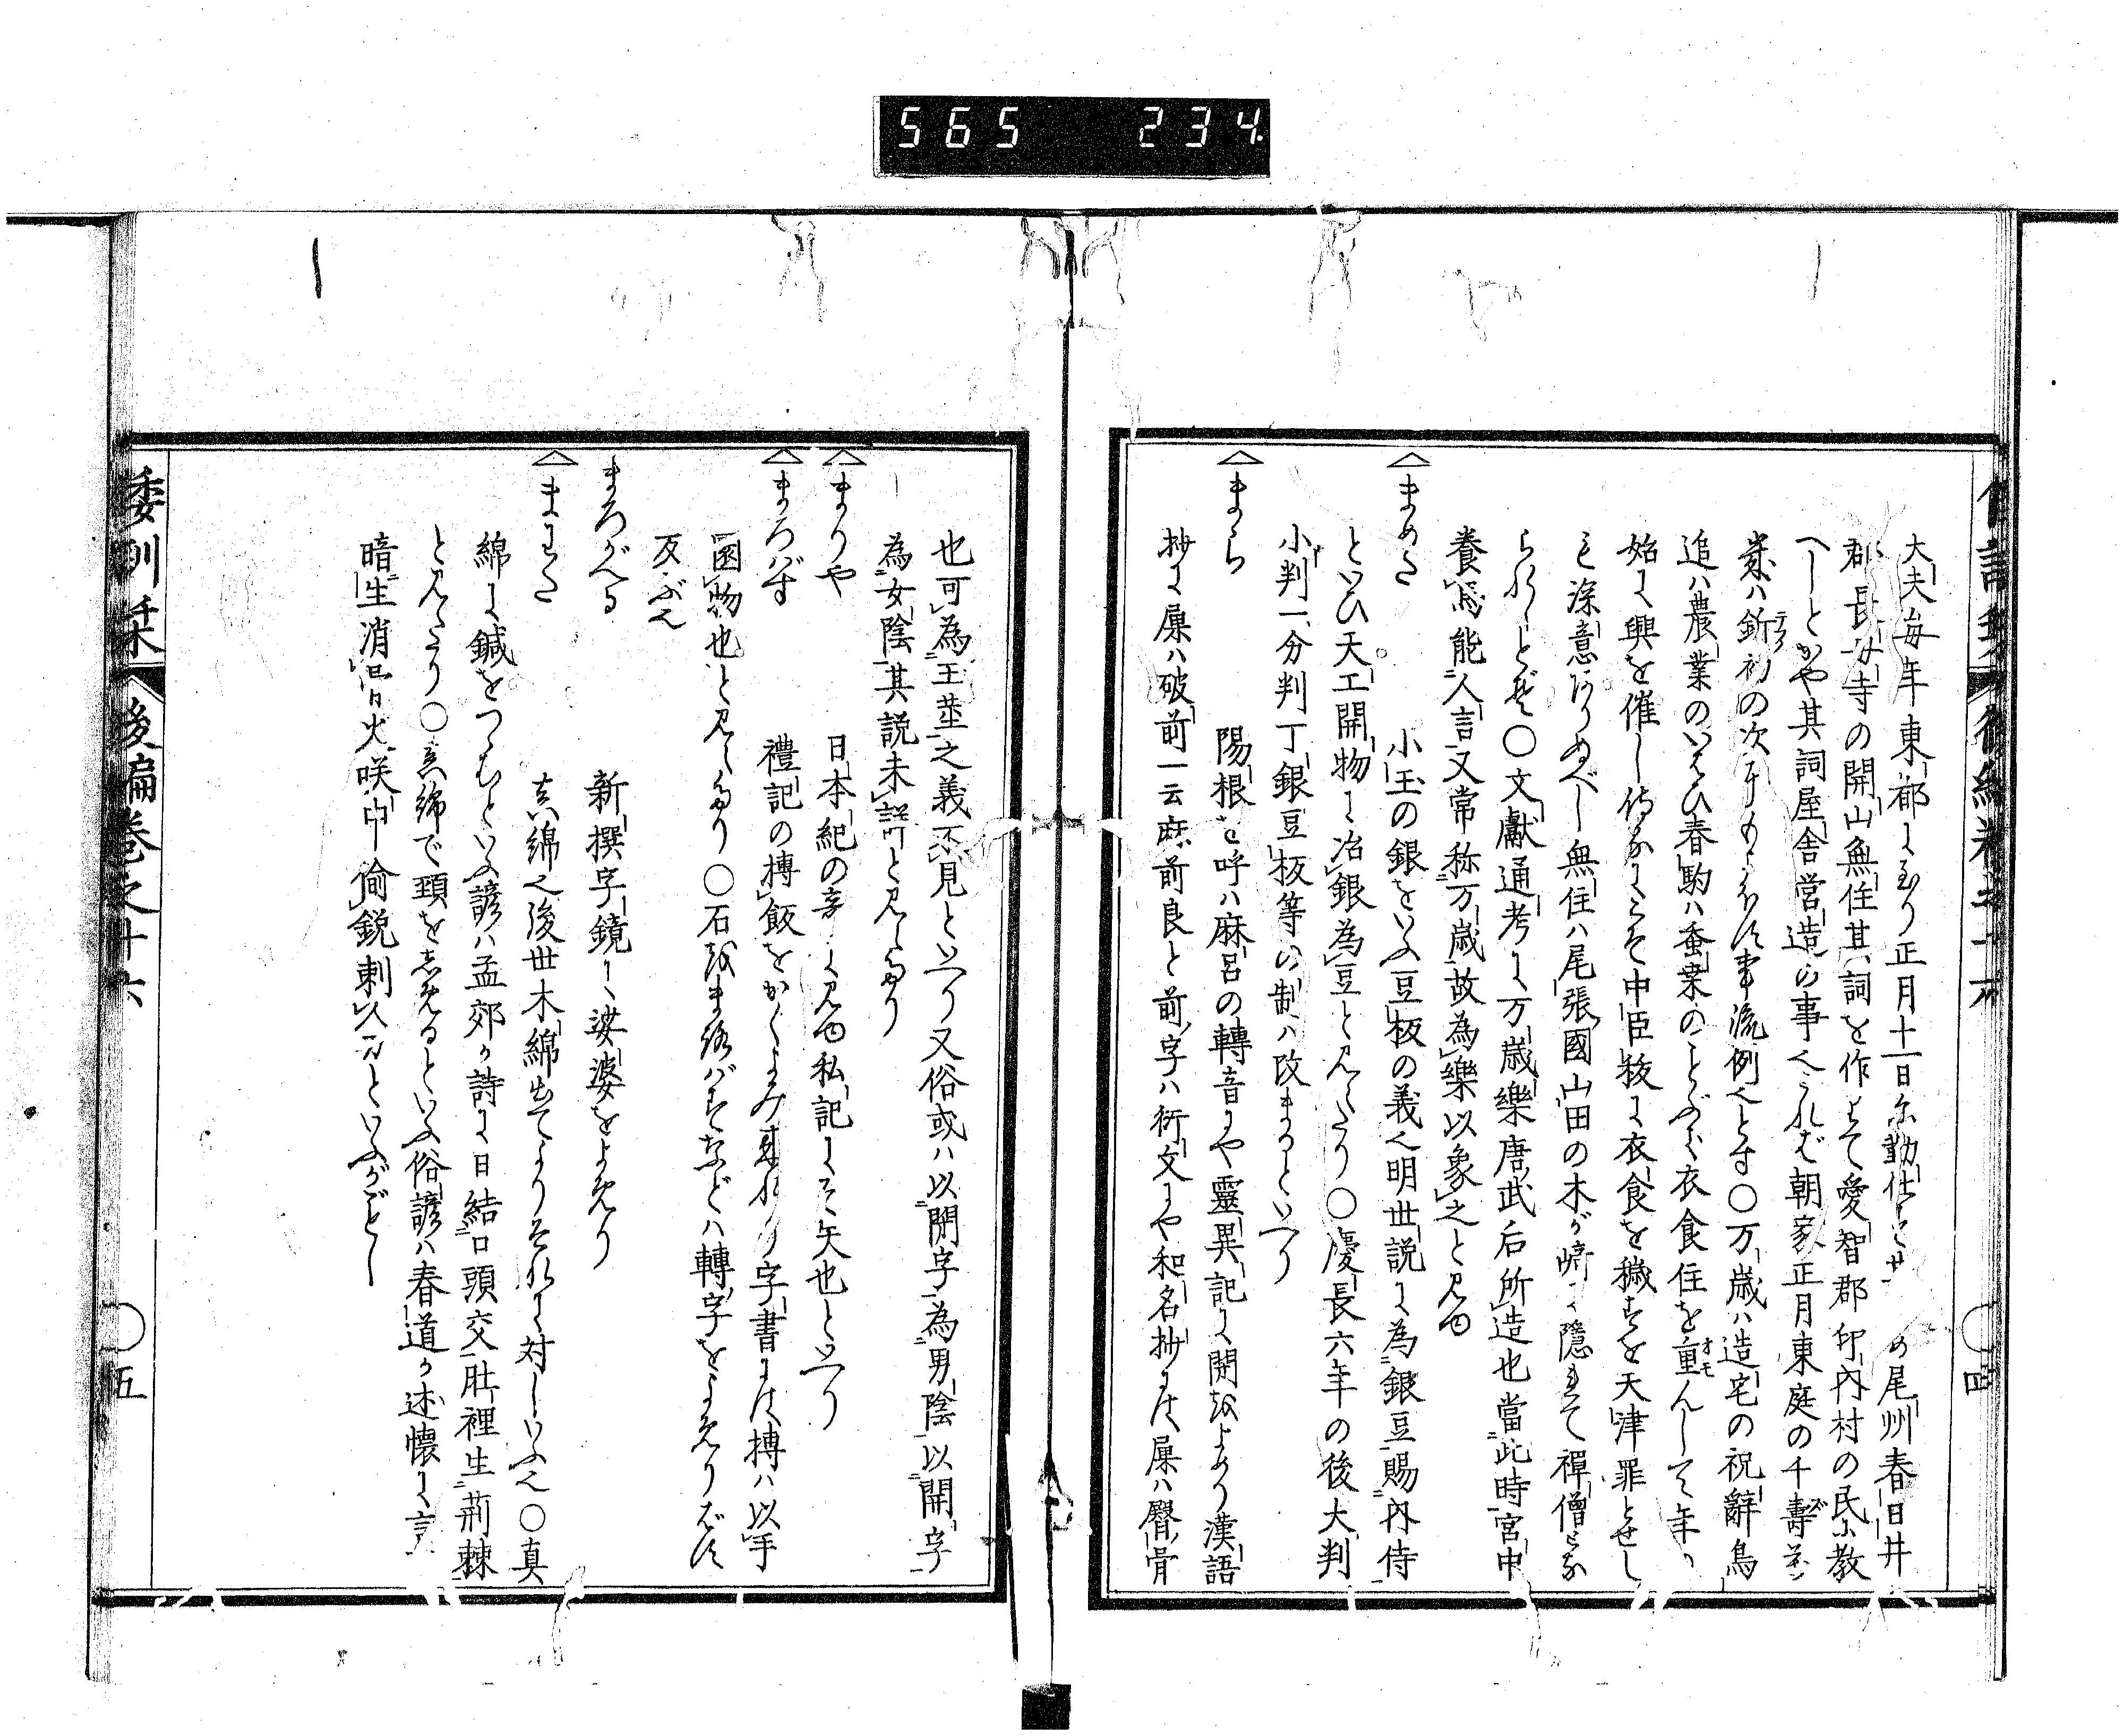 565 234
大夫毎年東都に至り正月十一日に勤仕とせ の尾州春日井
郡長母寺の開山無住其詞を作りて愛智郡印内村の民に教
へしとかや其詞屋舎営造の事也されば朝家正月東庭の千壽萬
歳ハ釿初の次に行ハるゝ事流例也とす〇万歳ハ造宅の祝辭鳥
追ハ農業のいはひ春駒ハ蚕業のことぶき衣食住を重んして年の
始に興を催し
中臣祓に衣食を穢すを天津罪とせし
も深意ありぬべし無住ハ尾張國山田の木が崎に隠れて禪僧とな
られしとぞ〇文獻通考に万歳樂唐武后所造也當此時宮中
養鳥能人言又常称万歳故為樂以象之と見ゆ
まめた 小玉の銀をいふ豆板の義也明世説に為銀豆賜内侍
といひ天工開物に冶銀為豆と見えたり〇慶長六年の後大判
小判一分判丁銀豆板等の制ハ改まるといへり
まら 陽根を呼ハ麻呂の轉音にや靈異記に閇をよめり漢語
抄に屎ハ破前一云麻前良と前字ハ衍文にや和名抄には屎ハ臀骨
四
也可為玉茎之義不見といへり又俗或ハ以閇字為男陰以開字
為女陰其説未詳と見えたり
まりや 日本紀の 見ゆ私記に 矢也といへり
まろばす 禮記の摶飯をかくよみ來れり字書には摶ハ以手
圜物也と見えたり〇石をまろばすなどハ轉字をよめりばす
反ぶ也
まろがへる 新撰字鏡に娑婆をよめり
まわた 真綿也後世木綿出てよりそれに対しいふ也〇真
綿に鍼をつゝむといふ諺ハ孟郊か詩に曰結口頭交肚裡生荊棘
と見えたり〇真綿で頚をしめるといふ俗諺ハ春道か述懐に言
暗生消骨火咲中偷鋭刺人刀といふがごとし
委訓栞 後編巻之十六 五